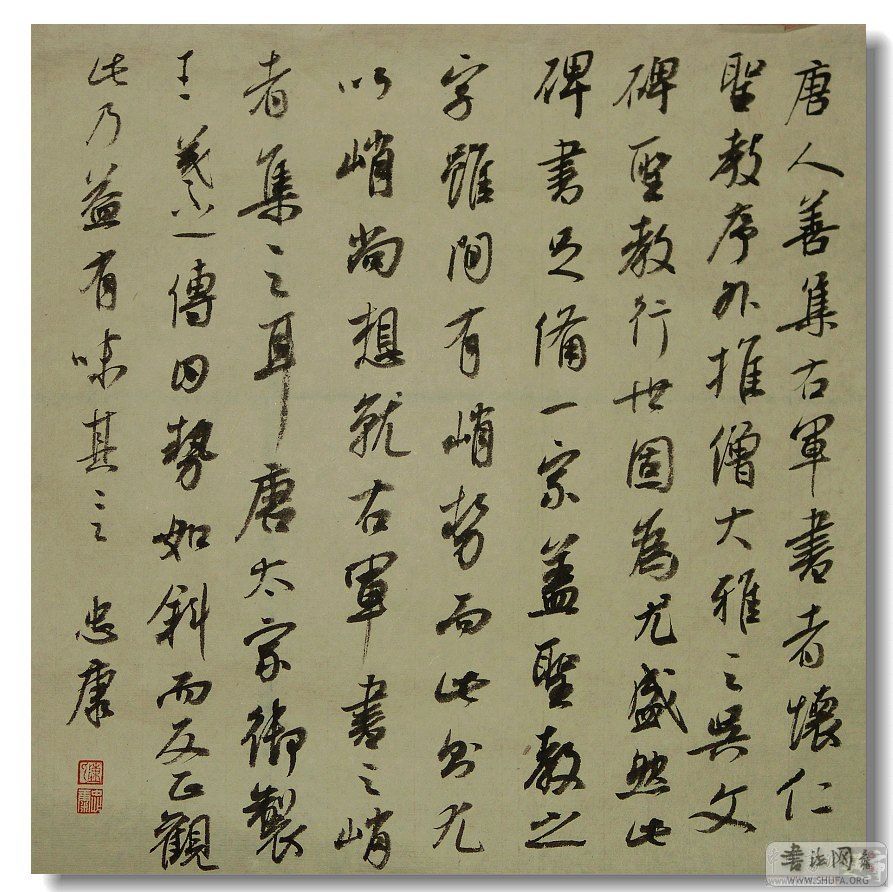 唐人善集右軍書者懷仁
聖教序外推僧大雅之吳文
碑聖教行世固為尤盛然此
碑書足備一宗蓋聖教之
字雖間有峭勢而此則尤
以峭尚想就右軍書之峭
者集之耳唐太宗御製
王羲之傳曰勢如斜而反正觀
此乃益有味其言 忠康
书法网
WWW.SHUFA.ORG